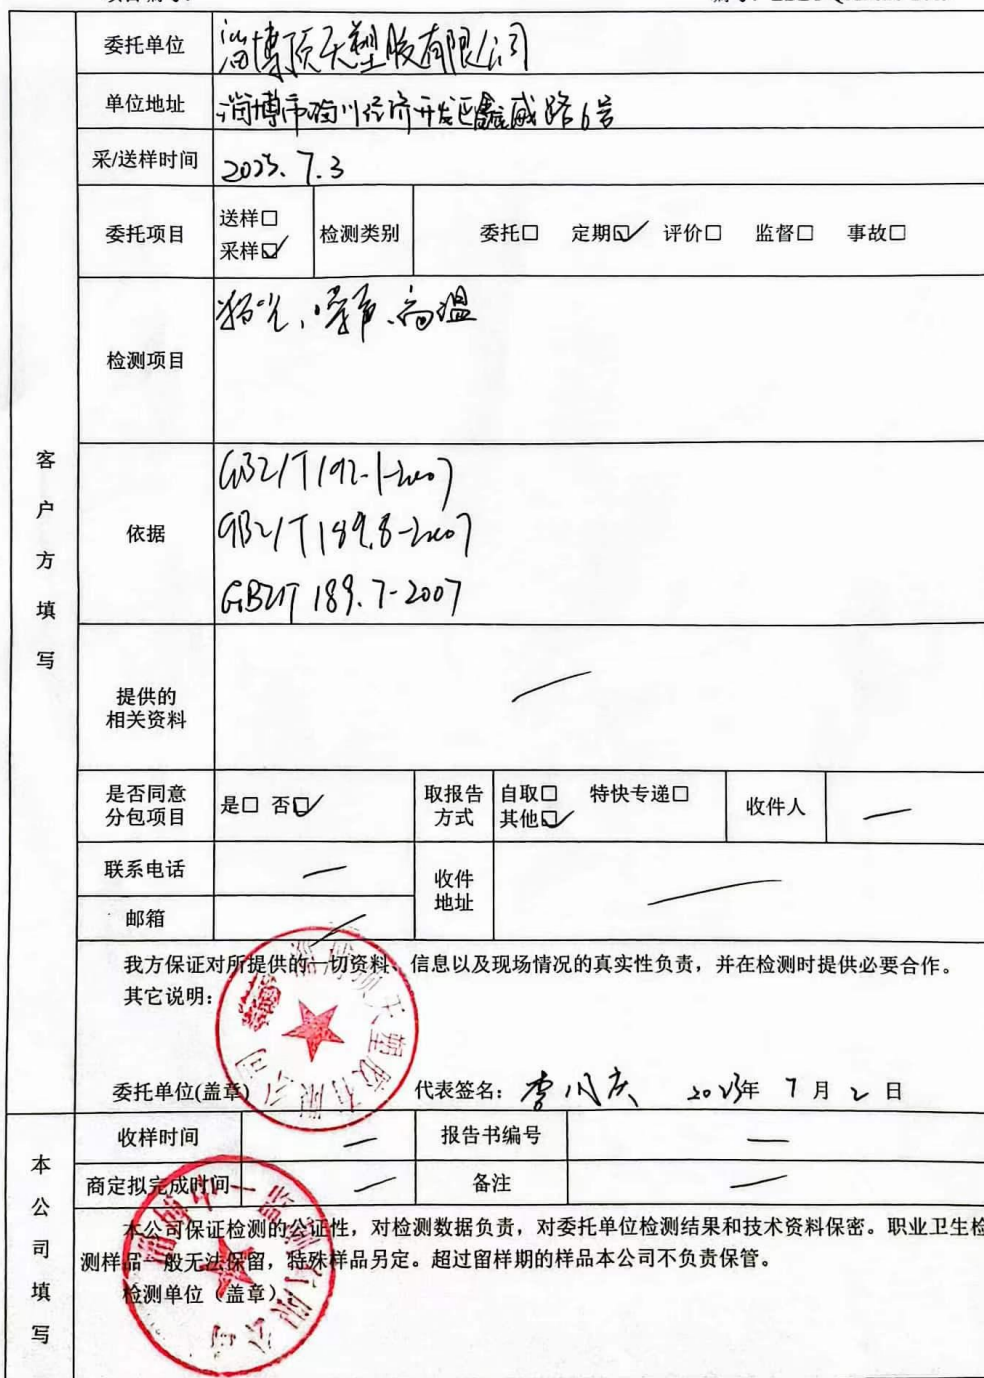 委托单位 淄博顶天塑胶有限公司
单位地址 淄博市淄川经济开发区鑫威路6号
采/送样时间 2023.7.3
委托项目 送样□ 采样☑ 检测类别 委托□ 定期☑ 评价□ 监督□ 事故□
检测项目 粉尘、噪声、高温
客户方填写
依据 GBZ/T 192.1-2007
GBZ/T 189.8-2007
GBZ/T 189.7-2007
提供的
相关资料 —
是否同意
分包项目 是□ 否☑ 取报告
方式 自取□ 特快专递□
其他☑ 收件人 —
联系电话 — 收件
地址 —
邮箱 —
我方保证对所提供的一切资料、信息以及现场情况的真实性负责，并在检测时提供必要合作。
其它说明：
淄博顶天塑胶有限公司
委托单位(盖章) 代表签名： 2023年 7月 2日
本公司填写
收样时间 — 报告书编号 —
商定拟完成时间 — 备注 —
本公司保证检测的公证性，对检测数据负责，对委托单位检测结果和技术资料保密。职业卫生检
测样品一般无法保留，特殊样品另定。超过留样期的样品本公司不负责保管。
检测单位（盖章）